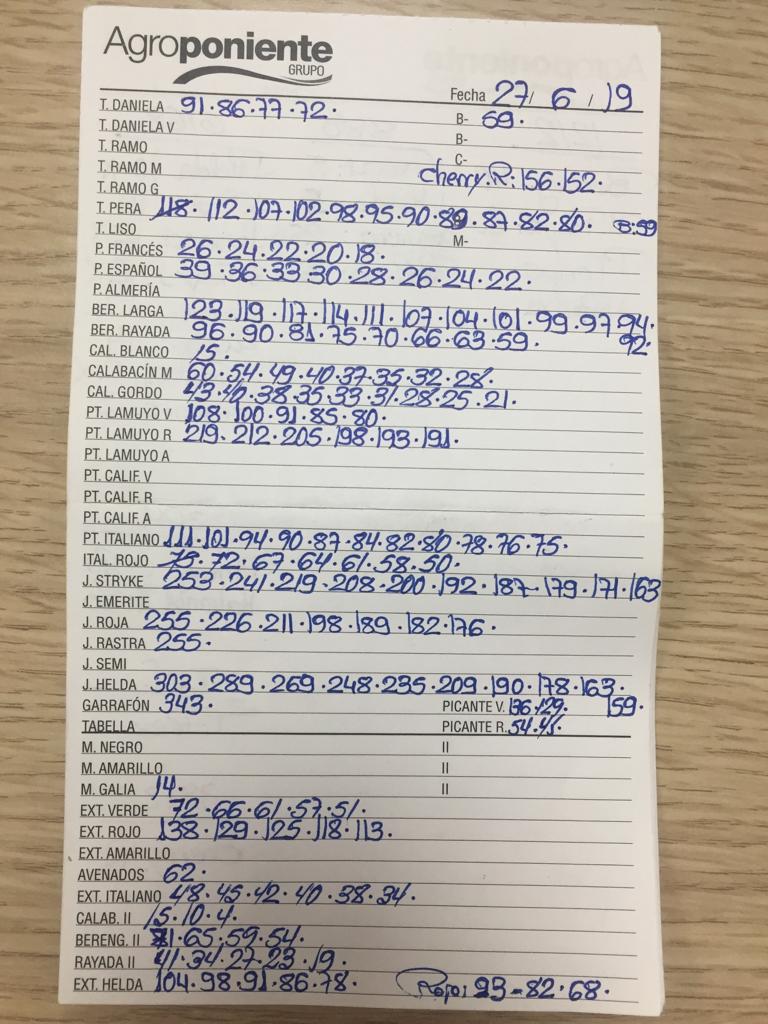 Agroponiente
GRUPO
Fecha 27/ 6 / 19
T. DANIELA 91·86·77·72· B- 69·
T. DANIELA V B-
T. RAMO C-
T. RAMO M cherry.R: 156·152·
T. RAMO G
T. PERA 118· 112·107·102·98·95·90·89·87·82·80· B:59
T. LISO M-
P. FRANCÉS 26·24·22·20·18·
P. ESPAÑOL 39·36·33·30·28·26·24·22·
P. ALMERÍA
BER. LARGA 123·119·117·114·111·107·104·101·99·97·94·
BER. RAYADA 96·90·81·75·70·66·63·59· 92·
CAL. BLANCO 15·
CALABACÍN M 60·54·49·40·37·35·32·28·
CAL. GORDO 43·40·38·35·33·31·28·25·21·
PT. LAMUYO V 108·100·91·85·80·
PT. LAMUYO R 219·212·205·198·193·191·
PT. LAMUYO A
PT. CALIF. V
PT. CALIF. R
PT. CALIF. A
PT. ITALIANO 111·101·94·90·87·84·82·80·78·76·75·
ITAL. ROJO 75·72·67·64·61·58·50·
J. STRYKE 253·241·219·208·200·192·187·179·171·163
J. EMERITE
J. ROJA 255·226·211·198·189·182·176·
J. RASTRA 255·
J. SEMI
J. HELDA 303·289·269·248·235·209·190·178·163·
GARRAFÓN 343· PICANTE V. 136·129· 159·
TABELLA PICANTE R. 54·45·
M. NEGRO II
M. AMARILLO II
M. GALIA 14· II
EXT. VERDE 72·66·61·57·51·
EXT. ROJO 138·129·125·118·113·
EXT. AMARILLO
AVENADOS 62·
EXT. ITALIANO 48·45·42·40·38·34·
CALAB. II 15·10·4·
BERENG. II 71·65·59·54·
RAYADA II 41·34·27·23·19·
EXT. HELDA 104·98·91·86·78· Roja: 93-82·68·